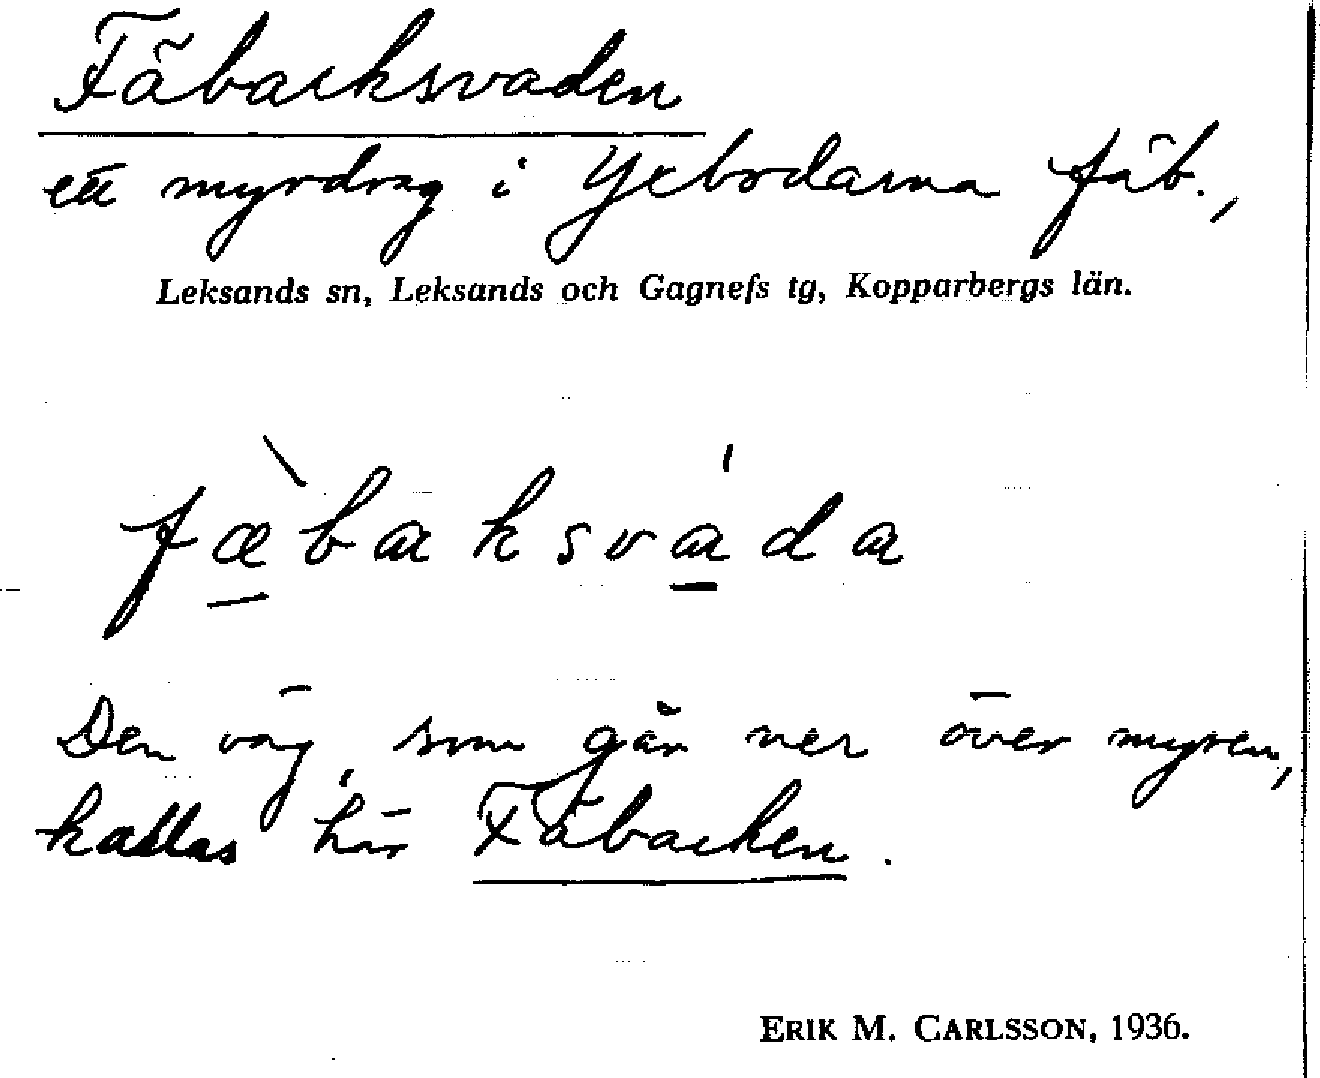 Fäbacksvaden
ett myrdrag i Yxbodarna fäb.,
Leksands sn, Leksands och Gagnefs tg, Kopparbergs län.
fæ̀baksváda
Den väg, som går ner över myren,
kallas här Fäbacken.
ERIK M. CARLSSON, 1936.